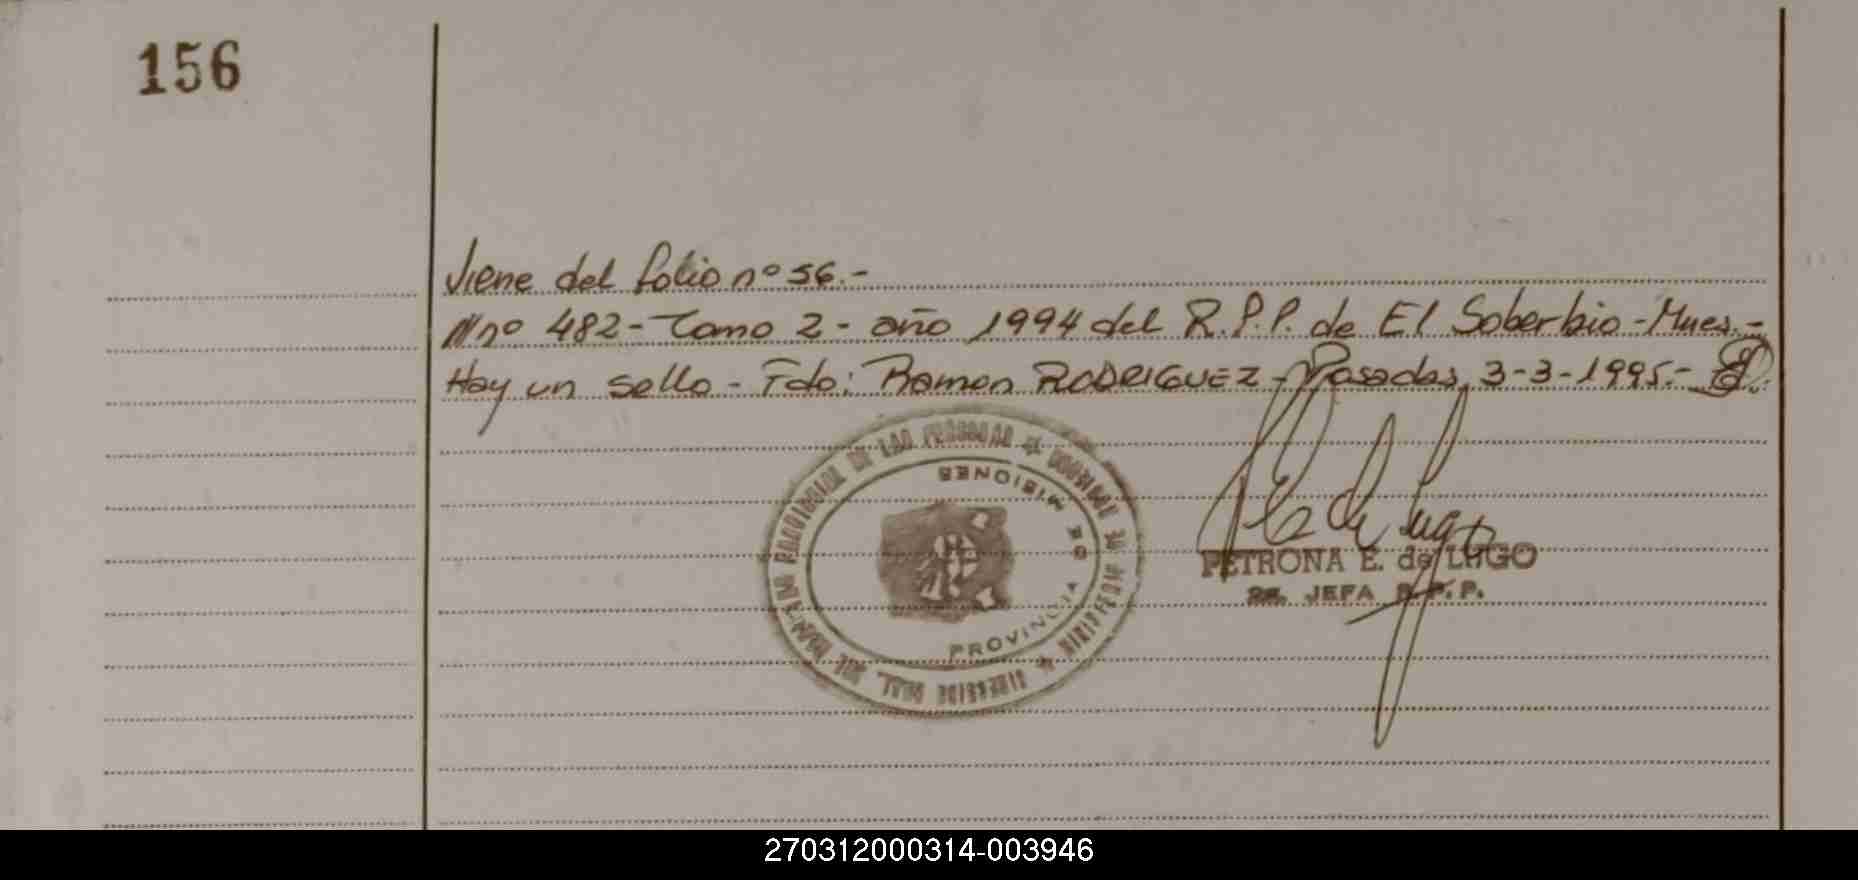 156
Viene del folio nº 56.-
///nº 482-Tomo 2- año 1994 del R.P.P. de El Soberbio-Mnes.-
Hay un sello- Fdo: Ramon RODRIGUEZ- Posadas, 3-3-1995.-
PROVINCIA DE MISIONES
PETRONA E. de LUGO
JEFA R.P.P.
270312000314-003946